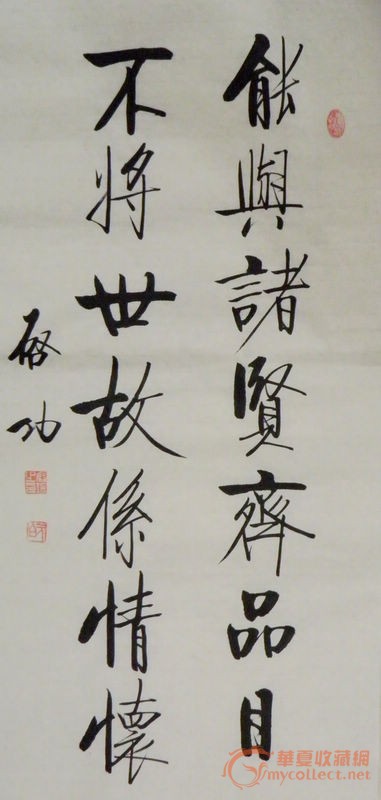 能與諸賢齊品目
不將世故係情懷
啓功
華夏收藏網
mycollect.net